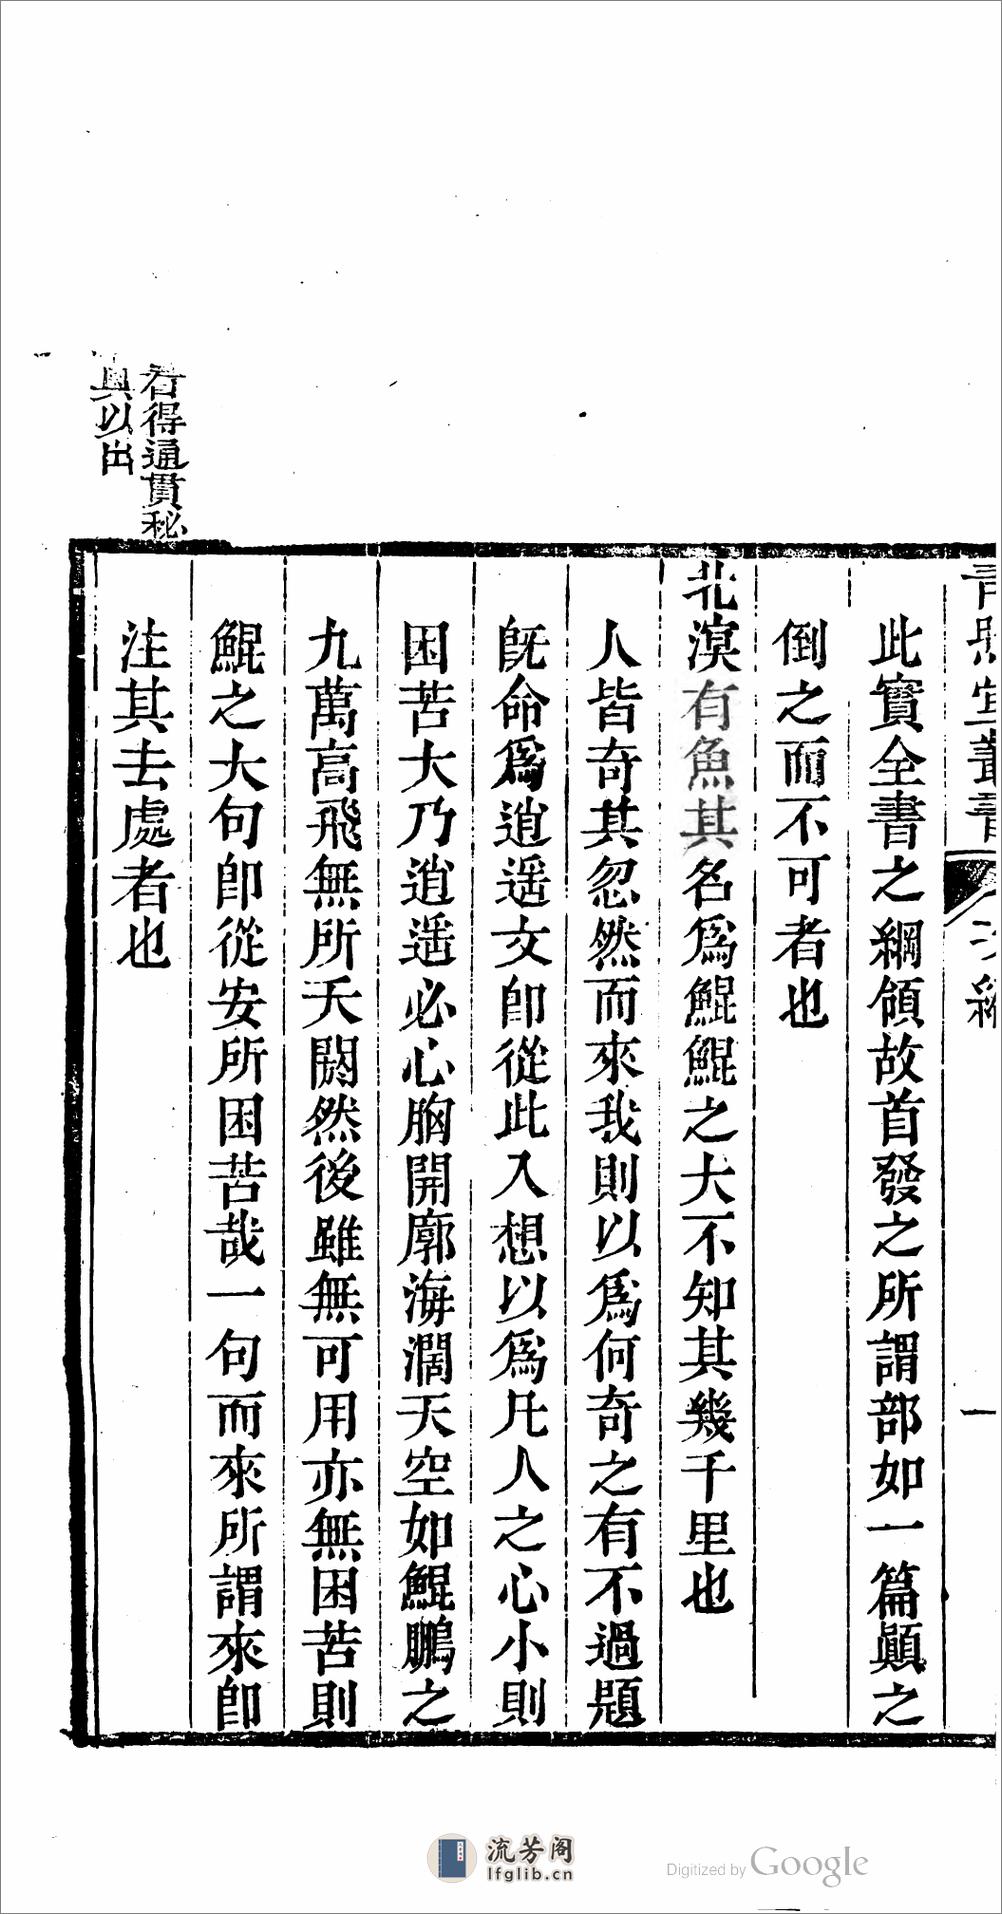 此實全書之綱領故首發之所謂部如一篇顚之
倒之而不可者也
北溟有魚其名爲鯤鯤之大不知其幾千里也
人皆奇其忽然而來我則以爲何奇之有不過題
旣命爲逍遥文卽從此入想以爲凡人之心小則
困苦大乃逍遥必心胸開廓海濶天空如鯤鵬之
九萬高飛無所夭閼然後雖無可用亦無困苦則
鯤之大句卽從安所困苦哉一句而來所謂來卽
注其去處者也
看得通貫秘
與以出
一
流芳阁
lfglib.cn
Digitized by Google